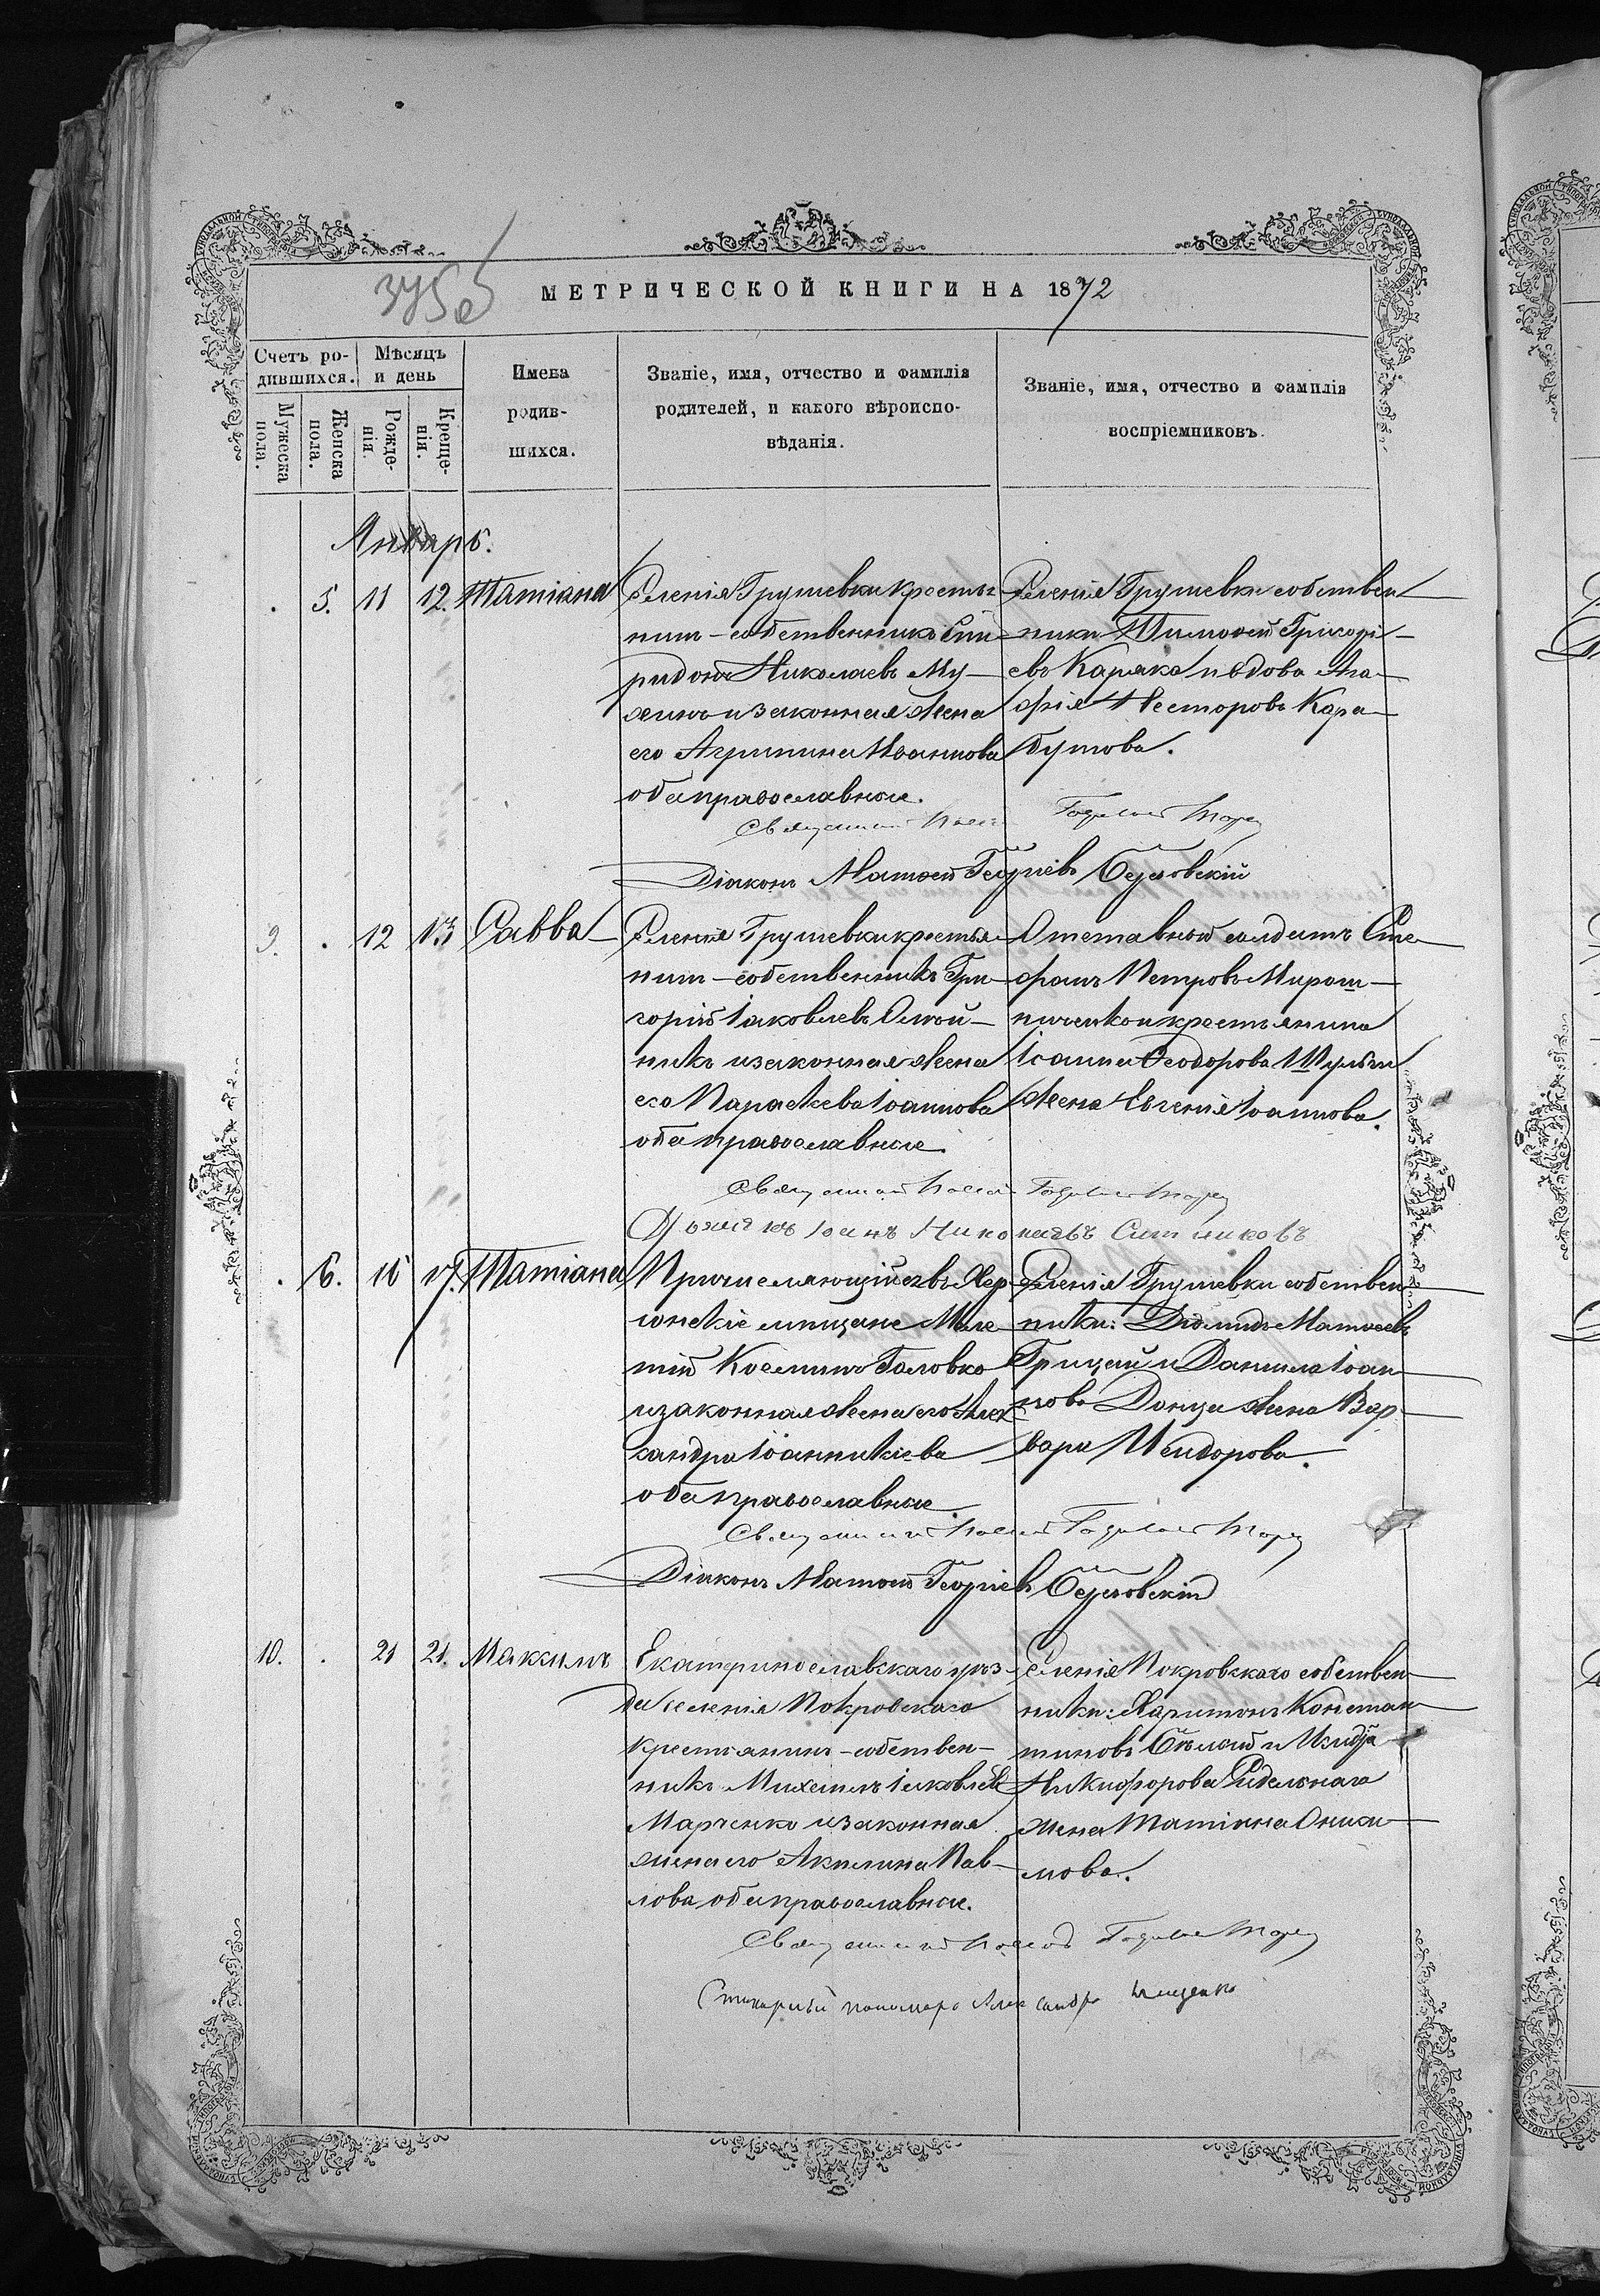 МЕТРИЧЕСКОЙ КНИГИ НА 1872
Счетъ ро-
дившихся.
Мужеска
пола.
Женска
пола.
Мѣсяцъ
и день
Рожде-
нія.
Креще-
нія.
Имена
родив-
шихся.
Званіе, имя, отчество и фамилія
родителей, и какого вѣроиспо-
вѣданія.
Званіе, имя, отчество и фамилія
воспріемниковъ.
Январь.
5. 11 12. Татіана
Селенія Грушевки крестья
нинъ-собственникъ Спи
ридонъ Николаевъ Му-
и законная жена
его Агрипина Іоаннова
оба православные.
Селенія Грушевки собствен
ники Тимоѳей Григорі-
евъ Каряка и вдова Ага
фія Несторова Кара
бутова.
Священникъ
Діаконъ Матѳей Георгіевъ
9. 12 13 Савва
Селенія Грушевки крестья
нинъ-собственникъ Гри
горій Іаковлевъ Олій-
никъ и законная жена
его Параскева Іоаннова
оба православные
Отставной солдатъ Сте
фанъ Петровъ Мирош
ниченко и крестьянина
Іоанна Ѳеодорова Шульги
жена Евгенія Іоаннова.
Священникъ
Іоанъ Николаевъ Ситниковъ
6. 16 17. Татіана
Причисляющійся въ Хер
сонскіе мѣщане Меле
тій Косминъ Головко
и законная жена его Алек
сандра Іоанникіева
оба православные.
Селенія Грушевки собствен
ники: Діомидъ Матѳеевъ
Грицай и Данила Іоан
нова Донца жена Вар
вара Исидорова.
Священникъ
Діаконъ Матѳей Георгіевъ
10. 21 21. Максимъ
Екатеринославскаго уѣз
да селенія Покровскаго
крестьянинъ-собствен-
никъ Михаилъ Іаковлевъ
Марченко и законная
жена его Акилина Пав-
лова оба православные.
Селенія Покровскаго собствен
ники: Харитонъ Констан
тиновъ Бѣлый и
Никифорова
жена Татіана Ониси
мова.
Священникъ
Стихарный пономарь Александръ Ищенко